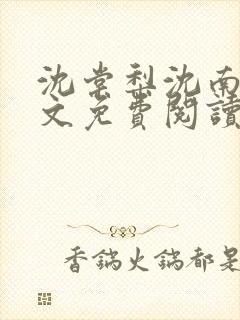 沈棠梨沈南
文免費閱讀
香鍋火鍋都是